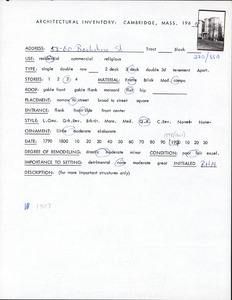 ARCHITECTURAL INVENTORY: CAMBRIDGE, MASS, 196
ADDRESS: 58-60 Berkshire St Tract Block 230/150
USE: residential commercial religious
TYPE: single double row 2 deck 3 deck double 3d tenement Apart.
STORIES: 1 2 3 4 MATERIAL: Frame Brick Mod. compo
ROOF: gable front gable flank mansard flat hip
PLACEMENT: narrow to street broad to street square
ENTRANCE: flank front side front center
STYLE: Q.A. None
ORNAMENT: little moderate elaborate
DATE: 1790 1800 10 20 30 40 50 60 70 80 90 1900 10 20 30
DEGREE OF REMODELING: drastic moderate minor CONDITION: poor fair excel.
IMPORTANCE TO SETTING: detrimental none moderate great INITIALED
DESCRIPTION: (for more important structures only)